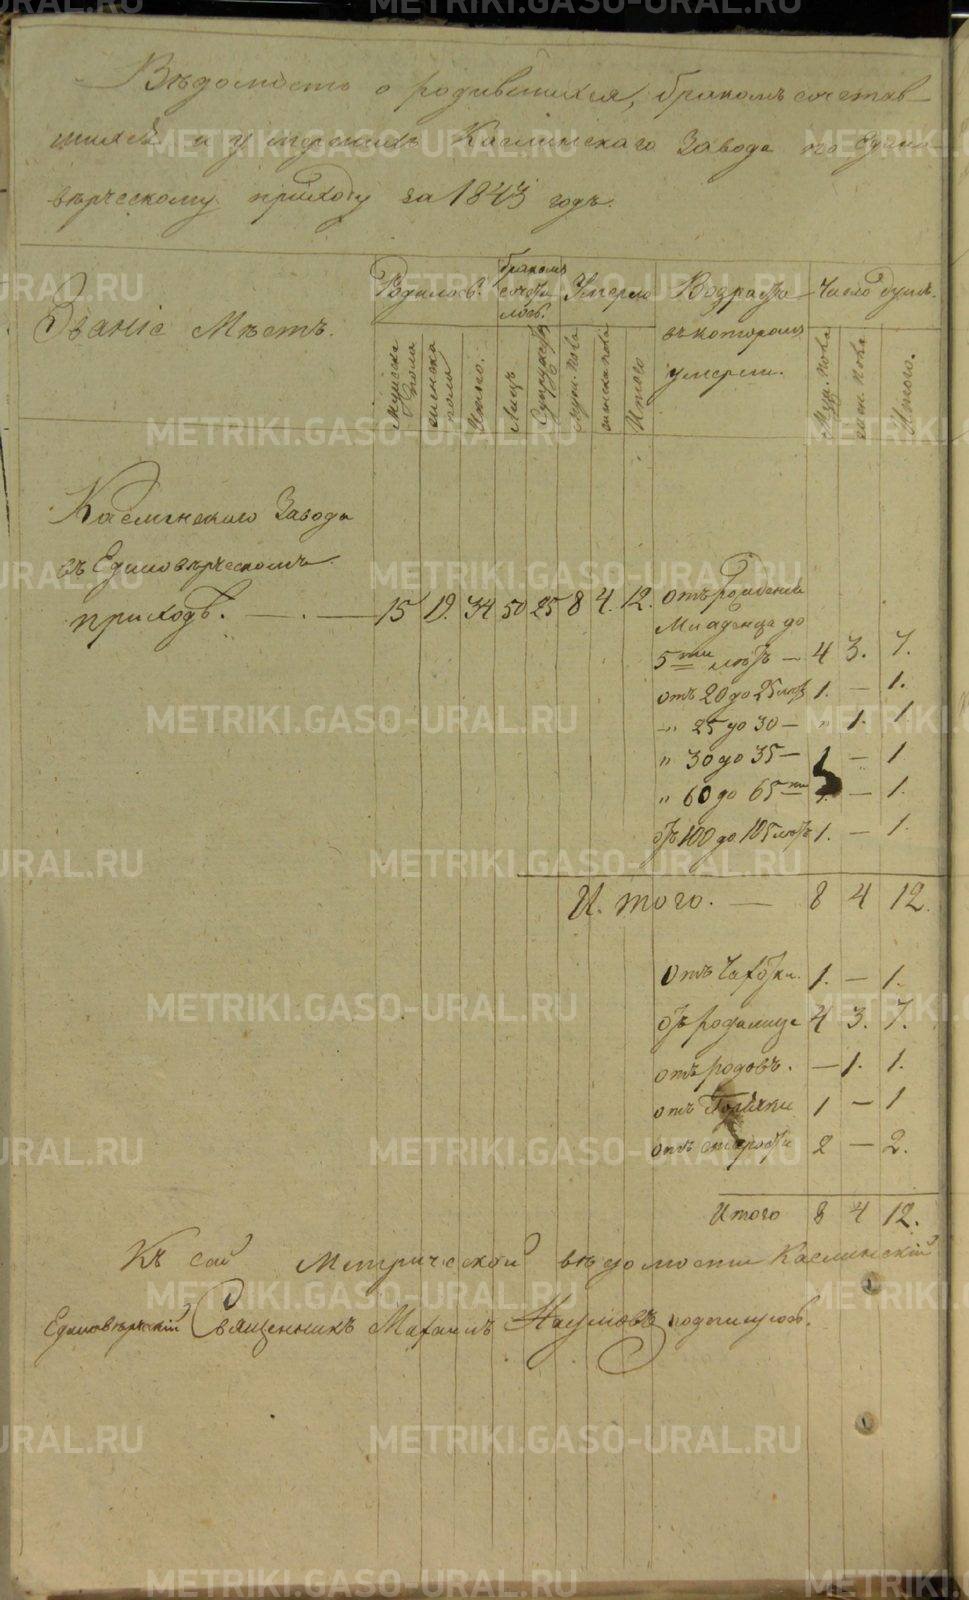 Вѣдомость о родившихся, бракомъ сочетав-
шихся и умершихъ Каслинскаго Завода по Едино-
вѣрческому приходу за 1843 годъ.
Званіе Мѣстъ.
Родилось.
бракомъ
сочета
лось.
Умерло
Возраста
въ которомъ
умерли.
Число душъ.
Мужска
пола
женска
пола
Итого.
Лицъ
Супружествъ
муж. пола
женска пола
Итого
Муж. пола
жен. пола
Итого.
Каслинскаго Завода
въ Единовѣрческомъ
приходѣ. 15 19. 34 50 25 8 4. 12.
отъ рожденія
Младенца до
5ти лѣтъ — 4 3. 7.
отъ 20 до 25 лѣтъ 1. — 1.
" 25 до 30 — " 1. 1.
" 30 до 35 — 1 — 1
" 60 до 65ти 1. — 1.
отъ 100 до 105 лѣтъ 1. — 1.
И того. — 8 4 12.
отъ Чахотки. 1. — 1.
отъ родимца 4 3. 7.
отъ родовъ. — 1. 1.
отъ Горячки 1 — 1
отъ старости 2 — 2.
Итого 8 4 12.
Къ сей Метрической вѣдомости Каслинскій
Единовѣрческій Священникъ Михаилъ Наумовъ подписуюсь.
METRIKI.GASO-URAL.RU